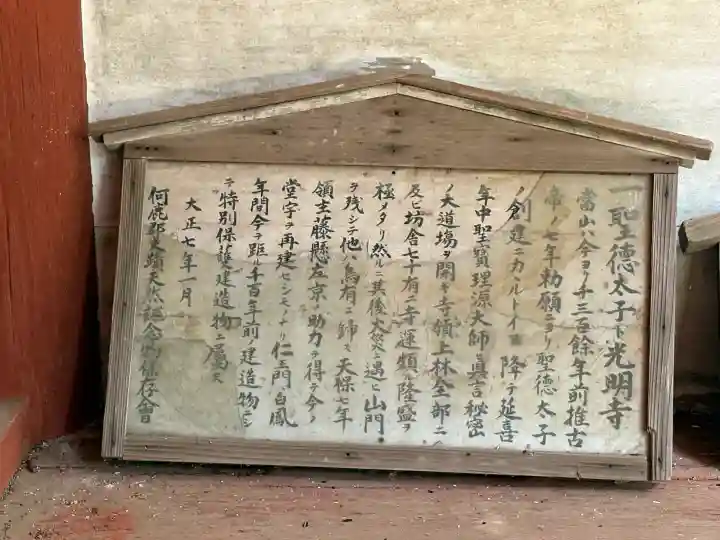 一聖徳太子ト光明寺
當山ハ今ヨリ千三百餘年前推古
帝ノ七年勅願ニヨリ聖徳太子
ノ創建ニカヽルトイフ降テ延喜
年中聖寳理源大師ハ眞言秘密
ノ大道場ヲ開キ寺領上林全部ニ
及ヒ坊舎七十有二寺運頗ル隆盛ヲ
極メタリ然ルニ其後火災ニ遇ヒ山門
ヲ残シテ他ハ烏有ニ歸ス天保七年
領主藤懸左京ノ助力ヲ得テ今ノ
堂宇ヲ再建セシモノナリ仁王門白鳳
年間今ヲ距ル千百年前ノ建造物ニシ
テ特別保護建造物ニ属ス
大正七年一月
何鹿郡史蹟天然紀念物保存會